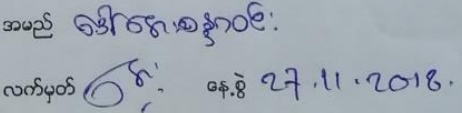 အမည် ဒေါ်ဆွေးစန္ဒာဝင်း
လက်မှတ် နေ့စွဲ 27.11.2018.